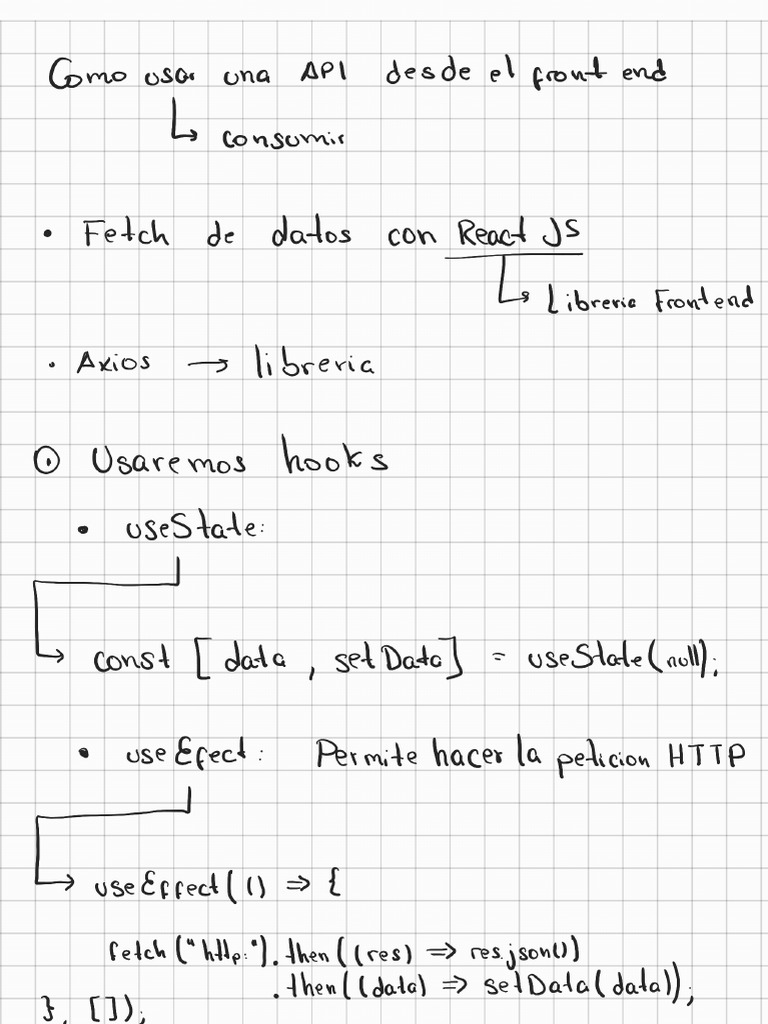 Como usar una API desde el front end
↳ consumir
• Fetch de datos con React JS
↳ Libreria Frontend
• Axios → libreria
⊙ Usaremos hooks
• useState:
↳ const [data , setData] = useState(null);
• useEfect: Permite hacer la peticion HTTP
↳ useEffect(() => {
fetch("http:").then((res) => res.json())
.then((data) => setData(data));
}, []);